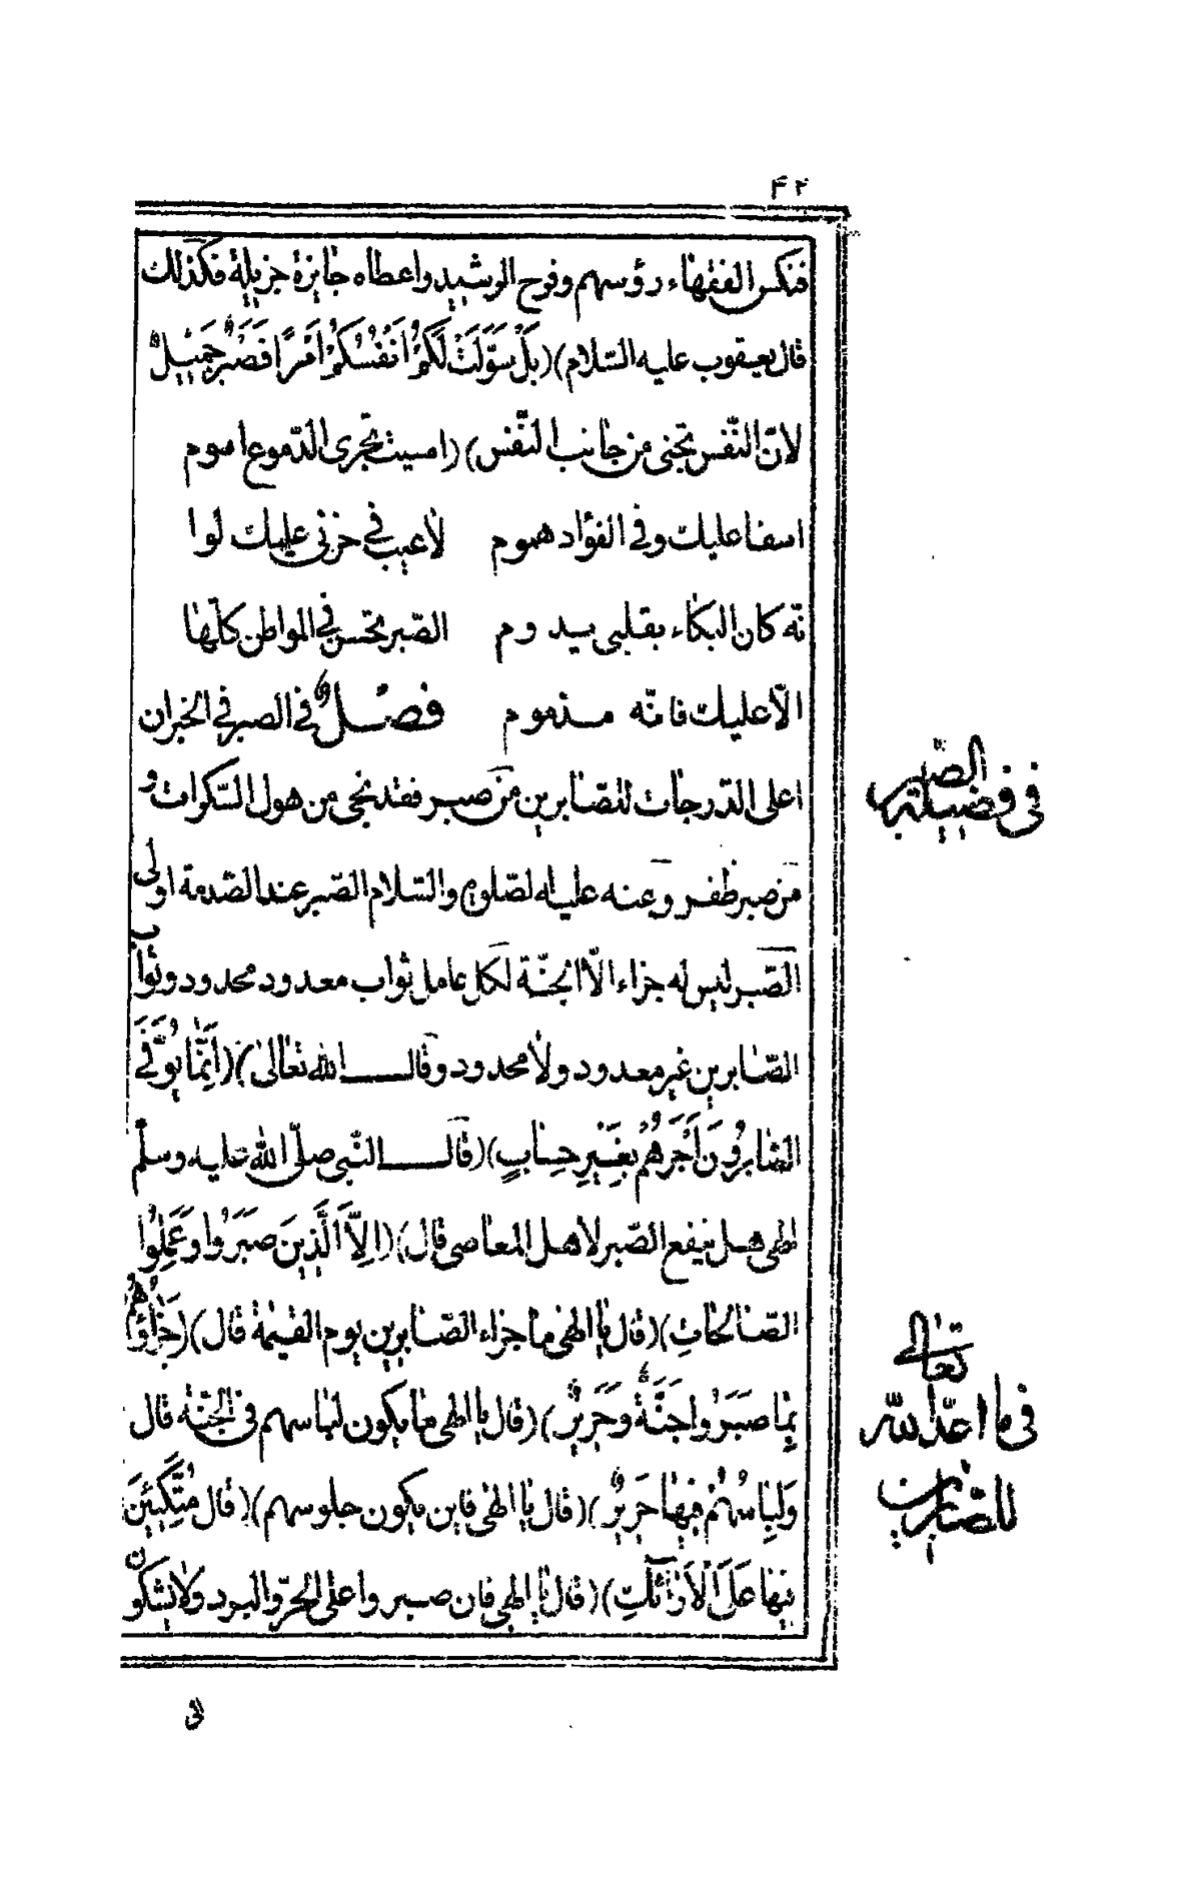 ٤٢
فنكس الفقهاء رؤسهم وفرح الرشيد واعطاه جايزة جزيلة فكذلك
قال يعقوب عليه السّلام)(بَلْ سَوَّلَتْ لَكُمْ اَنْفُسُكُمْ اَمْرًا فَصَبْرٌ جَمِيلٌ
لانّ النّفس تجنى من جانب النّفس)(امسيت تجرى الدّموع اموم
اسفا عليك وفى الفؤاد هموم لاعيب فى حزنى عليك لوا
نّه كان البكاء بقلبى يدوم الصّبر تحسن فى المواطن كلّها
الّا عليك فانّه مذموم فصلٌ فى الصبر فى الخبران
اعلى الدّرجات للصّابرين من صبر فقد نجى من هول السّكرات و
من صبر ظفر وعنه عليه الصّلوة والسّلام الصّبر عند الصّدمة اولى
الصّبر ليس له جزاء الّا الجنّة لكل عامل ثواب معدود محدود وثواب
الصّابرين غير معدود ولا محدود وقال الله تعالىٰ)(اِنَّمَا يُوَفَّى
الصّابِرُونَ اَجْرَهُمْ بِغَيْرِ حِسَابٍ)(قال النّبى صلّى الله عليه وسلّم
الهى هل ينفع الصّبر لاهل المعاصى قال)(اِلَّا الَّذِينَ صَبَرُوا وَعَمِلُوا
الصّالحَاتِ)(قال يا الهى ما جزاء الصّابرين يوم القيمة قال)(جَزَاؤُهُمْ
بِمَا صَبَرُوا جَنَّةً وَحَرِيرٌ)(قال يا الهى ما يكون لباسهم فى الجنّة قال
وَلِبَاسُهُمْ فِيهَا حَرِيرٌ)(قال يا الهى فاين يكون جلوسهم)(قال مُتَّكِئِينَ
فِيهَا عَلَى الْاَرَائِكِ)(قال يا الهى فان صبروا على الحرّ والبرد ولا يشكون
الى
فى فضيلة الصّبر
فى ما اعدّ الله تعالى
للصّابرين